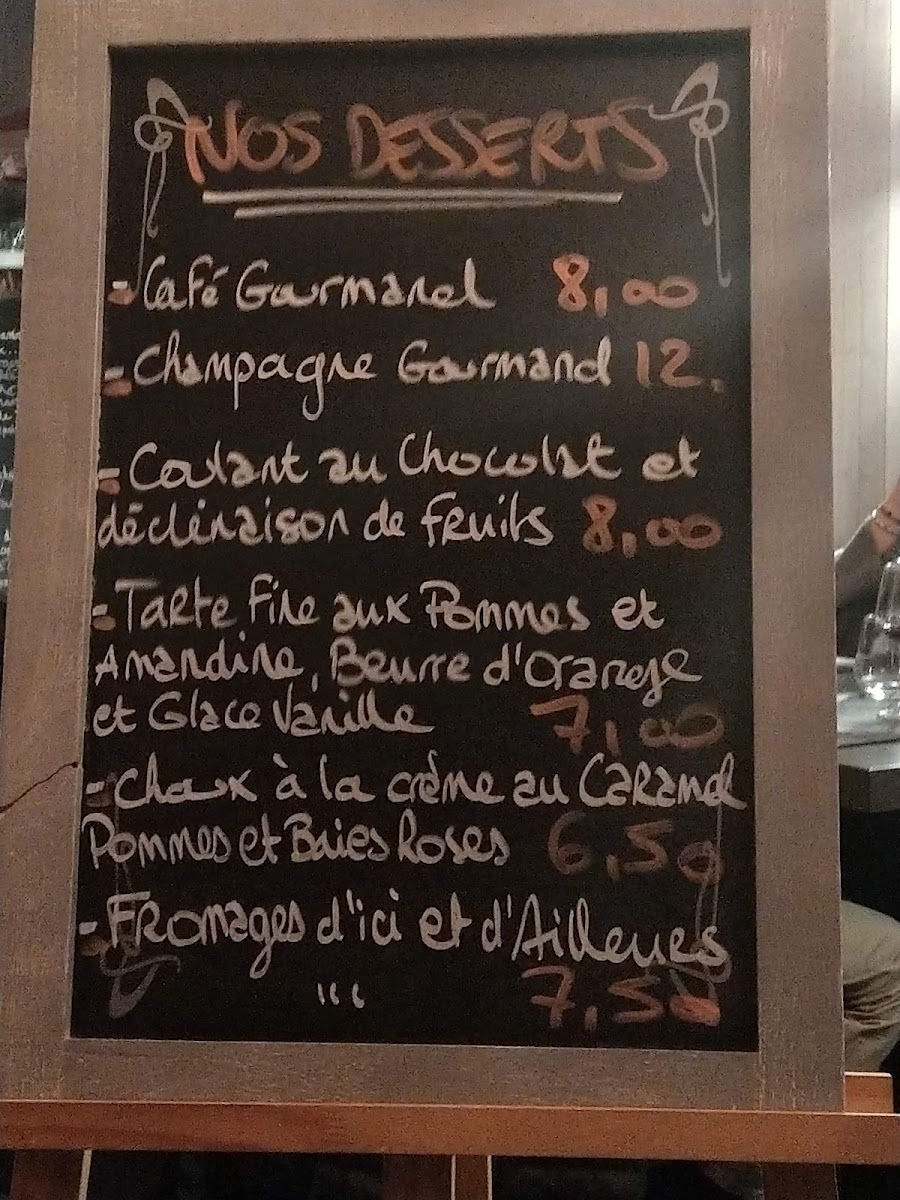 NOS DESSERTS
- Café Gourmand 8,00
- Champagne Gourmand 12.
- Coulant au Chocolat et
déclinaison de fruits 8,00
- Tarte Fine aux Pommes et
Amandine, Beurre d'Orange
et Glace Vanille 7,00
- Choux à la crème au Caramel
Pommes et Baies Roses 6,50
- Fromages d'ici et d'Ailleurs
... 7,50